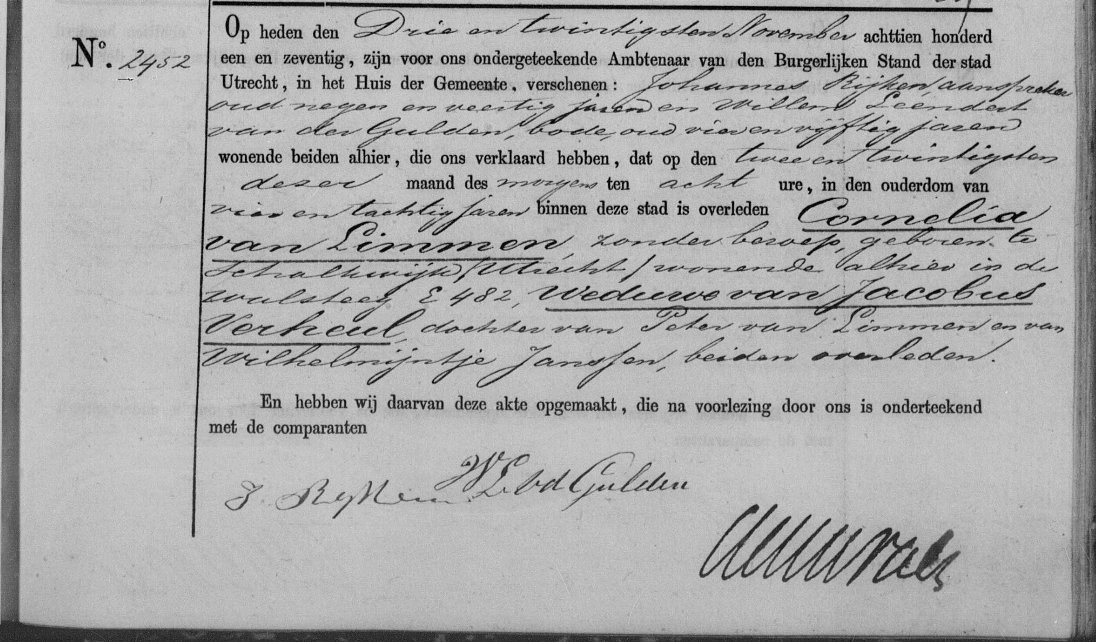 Op heden den Drie en twintigsten November achttien honderd
N°. 2452
een en zeventig, zijn voor ons ondergeteekende Ambtenaar van den Burgerlijken Stand der stad
Utrecht, in het Huis der Gemeente, verschenen: Johannes Rijken, aanspreker
oud negen en veertig jaren en Willem Leendert
van der Gulden, bode, oud vier en vijftig jaren
wonende beiden alhier, die ons verklaard hebben, dat op den twee en twintigsten
dezer maand des morgens ten acht ure, in den ouderdom van
vier en tachtig jaren binnen deze stad is overleden Cornelia
van Limmen, zonder beroep, geboren te
Schalkwijk (Utrecht) wonende alhier in de
Walsteeg, E 482, Weduwe van Jacobus
Verheul, dochter van Peter van Limmen en van
Wilhelmijntje Janssen, beiden overleden.
En hebben wij daarvan deze akte opgemaakt, die na voorlezing door ons is onderteekend
met de comparanten
J. Rijken WL vd Gulden